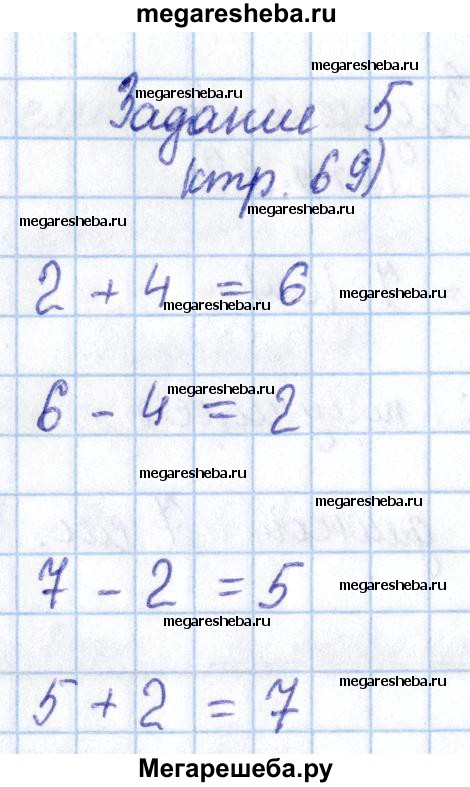 megaresheba.ru
megaresheba.ru
megaresheba.ru
Задание 5
(стр. 69)
megaresheba.ru
megaresheba.ru
2 + 4 = 6
megaresheba.ru
megaresheba.ru
megaresheba.ru
6 - 4 = 2
megaresheba.ru
megaresheba.ru
7 - 2 = 5
megaresheba.ru
megaresheba.ru
megaresheba.ru
5 + 2 = 7
Мегарешеба.ру